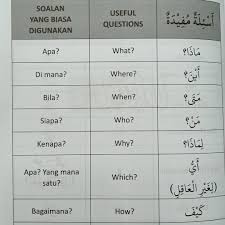 SOALAN
YANG BIASA
DIGUNAKAN
USEFUL
QUESTIONS
أَسْئِلَةٌ مُفِيْدَةٌ
Apa?
What?
مَاذَا؟
Di mana?
Where?
أَيْنَ؟
Bila?
When?
مَتَى؟
Siapa?
Who?
مَنْ؟
Kenapa?
Why?
لِمَاذَا؟
Apa? Yang mana
satu?
Which?
أَيُّ
(لِغَيْرِ الْعَاقِلِ)
Bagaimana?
How?
كَيْفَ